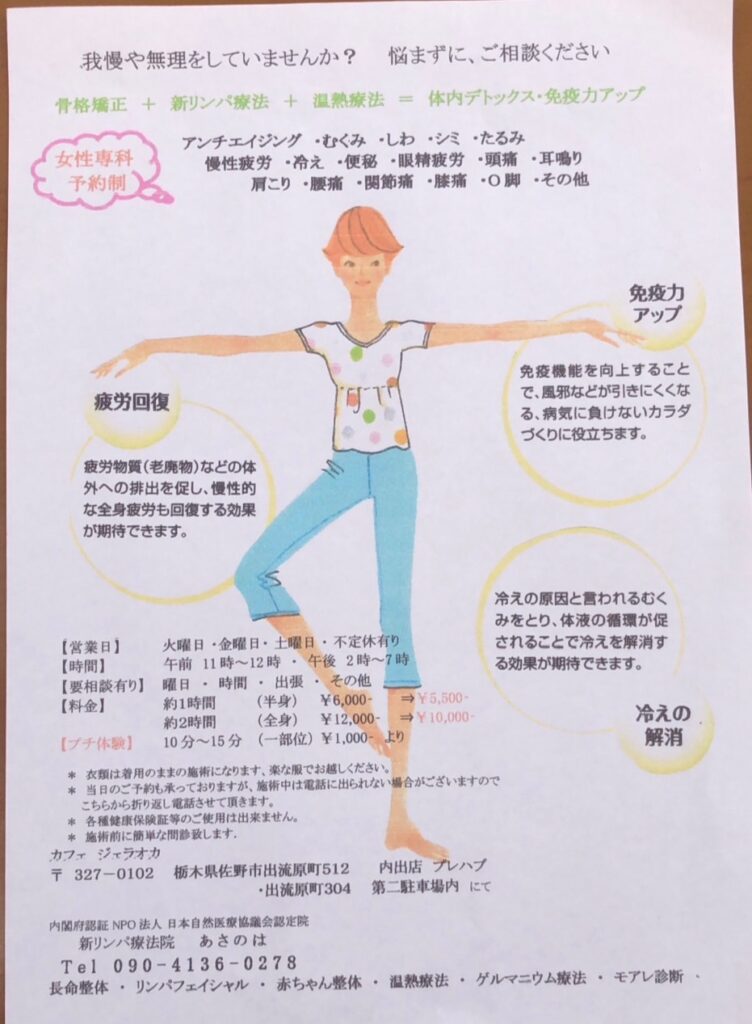 我慢や無理をしていませんか？　悩まずに、ご相談ください
骨格矯正 ＋ 新リンパ療法 ＋ 温熱療法 ＝ 体内デトックス・免疫力アップ
女性専科
予約制
アンチエイジング ・むくみ ・しわ ・シミ ・たるみ
慢性疲労 ・冷え ・便秘 ・眼精疲労 ・頭痛 ・耳鳴り
肩こり ・腰痛 ・関節痛 ・膝痛 ・O脚 ・その他
免疫力
アップ
免疫機能を向上すること
で、風邪などが引きにくくな
る、病気に負けないカラダ
づくりに役立ちます。
疲労回復
疲労物質（老廃物）などの体
外への排出を促し、慢性的
な全身疲労も回復する効果
が期待できます。
冷えの原因と言われるむく
みをとり、体液の循環が促
されることで冷えを解消す
る効果が期待できます。
冷えの
解消
【営業日】　火曜日・金曜日・土曜日・不定休有り
【時間】　午前 11時～12時 ・ 午後 2時～7時
【要相談有り】　曜日 ・ 時間 ・ 出張 ・ その他
【料金】　約1時間　（半身）　￥6,000-　⇒￥5,500-
約2時間　（全身）　￥12,000-　⇒￥10,000-
【プチ体験】　10分～15分　（一部位）￥1,000- より
＊ 衣類は着用のままの施術になります、楽な服でお越しください。
＊ 当日のご予約も承っておりますが、施術中は電話に出られない場合がございますので
こちらから折り返し電話させて頂きます。
＊ 各種健康保険証等のご使用は出来ません。
＊ 施術前に簡単な問診致します.
カフェ ジェラオカ
〒 327－0102　栃木県佐野市出流原町512　内出店 プレハブ
・出流原町304　第二駐車場内 にて
内閣府認証 NPO 法人 日本自然医療協議会認定院
新リンパ療法院　あさのは
Tel 090-4136-0278
長命整体 ・ リンパフェイシャル ・ 赤ちゃん整体 ・ 温熱療法 ・ ゲルマニウム療法 ・ モアレ診断 ・